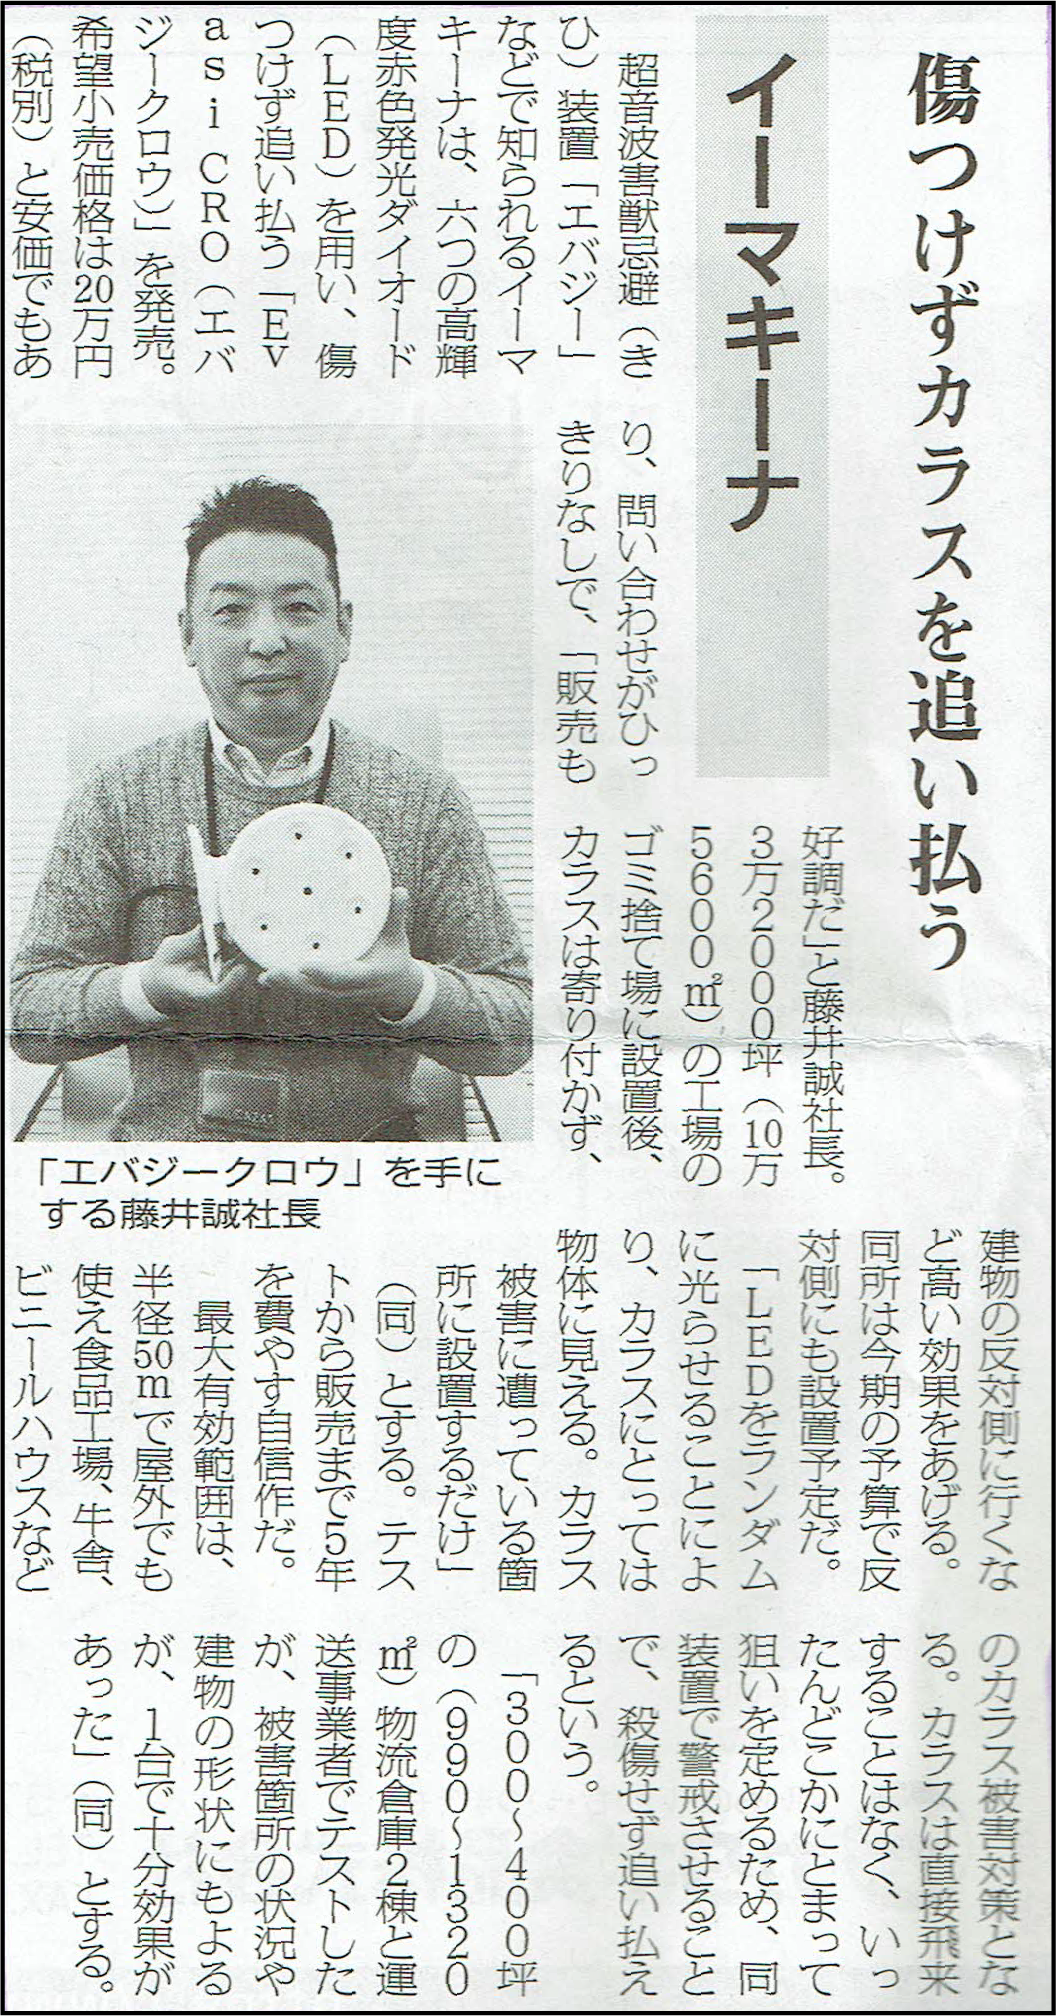 傷つけずカラスを追い払う
イーマキーナ
超音波害獣忌避（き
ひ）装置「エバジー」
などで知られるイーマ
キーナは、六つの高輝
度赤色発光ダイオード
（ＬＥＤ）を用い、傷
つけず追い払う「Ｅｖ
ａｓｉ ＣＲＯ（エバ
ジークロウ）」を発売。
希望小売価格は20万円
（税別）と安価でもあ
り、問い合わせがひっ
きりなしで、「販売も
好調だ」と藤井誠社長。
３万２０００坪（10万
５６００㎡）の工場の
ゴミ捨て場に設置後、
カラスは寄り付かず、
建物の反対側に行くな
ど高い効果をあげる。
同所は今期の予算で反
対側にも設置予定だ。
「ＬＥＤをランダム
に光らせることによ
り、カラスにとっては
物体に見える。カラス
被害に遭っている箇
所に設置するだけ」
（同）とする。テス
トから販売まで５年
を費やす自信作だ。
最大有効範囲は、
半径50ｍで屋外でも
使え食品工場、牛舎、
ビニールハウスなど
のカラス被害対策とな
る。カラスは直接飛来
することはなく、いっ
たんどこかにとまって
狙いを定めるため、同
装置で警戒させること
で、殺傷せず追い払え
るという。
「３００～４００坪
の（９９０～１３２０
㎡）物流倉庫２棟と運
送事業者でテストした
が、被害箇所の状況や
建物の形状にもよる
が、１台で十分効果が
あった」（同）とする。
「エバジークロウ」を手に
する藤井誠社長